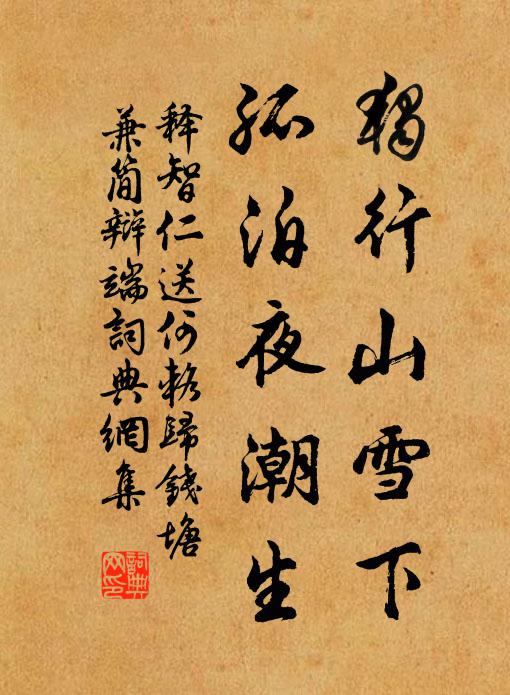 獨行山雪下
孤泊夜潮生
释智仁送何輅歸錢塘
兼簡辯端詞典網集
詞典网印